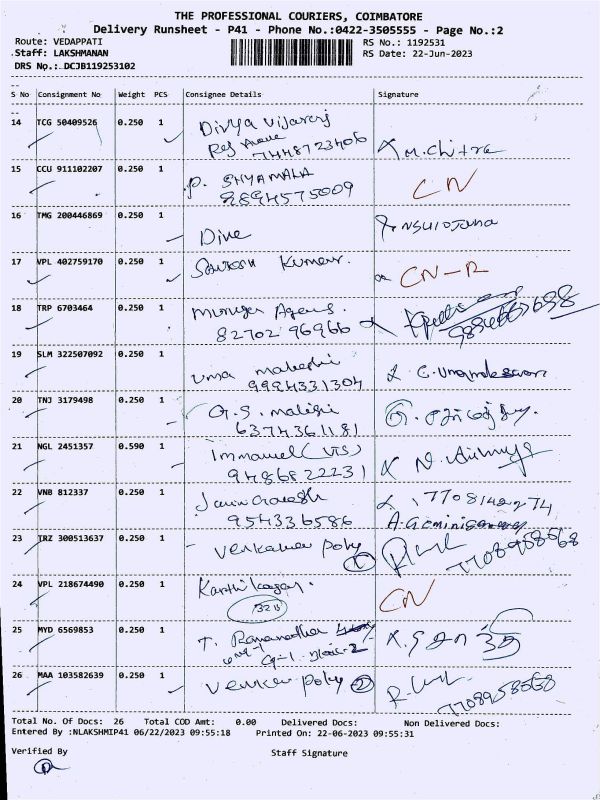 THE PROFESSIONAL COURIERS, COIMBATORE
Delivery Runsheet - P41 - Phone No.:0422-3505555 - Page No.:2
Route: VEDAPPATI RS No.: 1192531
Staff: LAKSHMANAN RS Date: 22-Jun-2023
DRS No.: DCJB119253102
S No Consignment No Weight PCS Consignee Details Signature
14 TCG 50409526 0.250 1 Divya Vijayraj
7448723406 M. Chitra
15 CCU 911102207 0.250 1 P. SHYAMALA CN
9894575009
16 TMG 200446869 0.250 1 Dive
17 VPL 402759170 0.250 1 Santosh Kumar. CN-R
18 TRP 6703464 0.250 1 Murugan Agency.
82702 96966
19 SLM 322507092 0.250 1 Uma maheshi C. Umamaheswari
9994331304
20 TNJ 3179498 0.250 1 G.S. malini
6374361181
21 NGL 2451357 0.590 1 Immanuel (VTS)
9486822231
22 VNB 812337 0.250 1 7708142274
954336586
23 TRZ 300513637 0.250 1 Venkatesa Poly 1 7708958568
24 VPL 218674490 0.250 1 CN
320
25 MYD 6569853 0.250 1 T. Ramanadha
26 MAA 103582639 0.250 1 Poly 2 7708958568
Total No. Of Docs: 26 Total COD Amt: 0.00 Delivered Docs: Non Delivered Docs:
Entered By :NLAKSHMIP41 06/22/2023 09:55:18 Printed On: 22-06-2023 09:55:31
Verified By Staff Signature